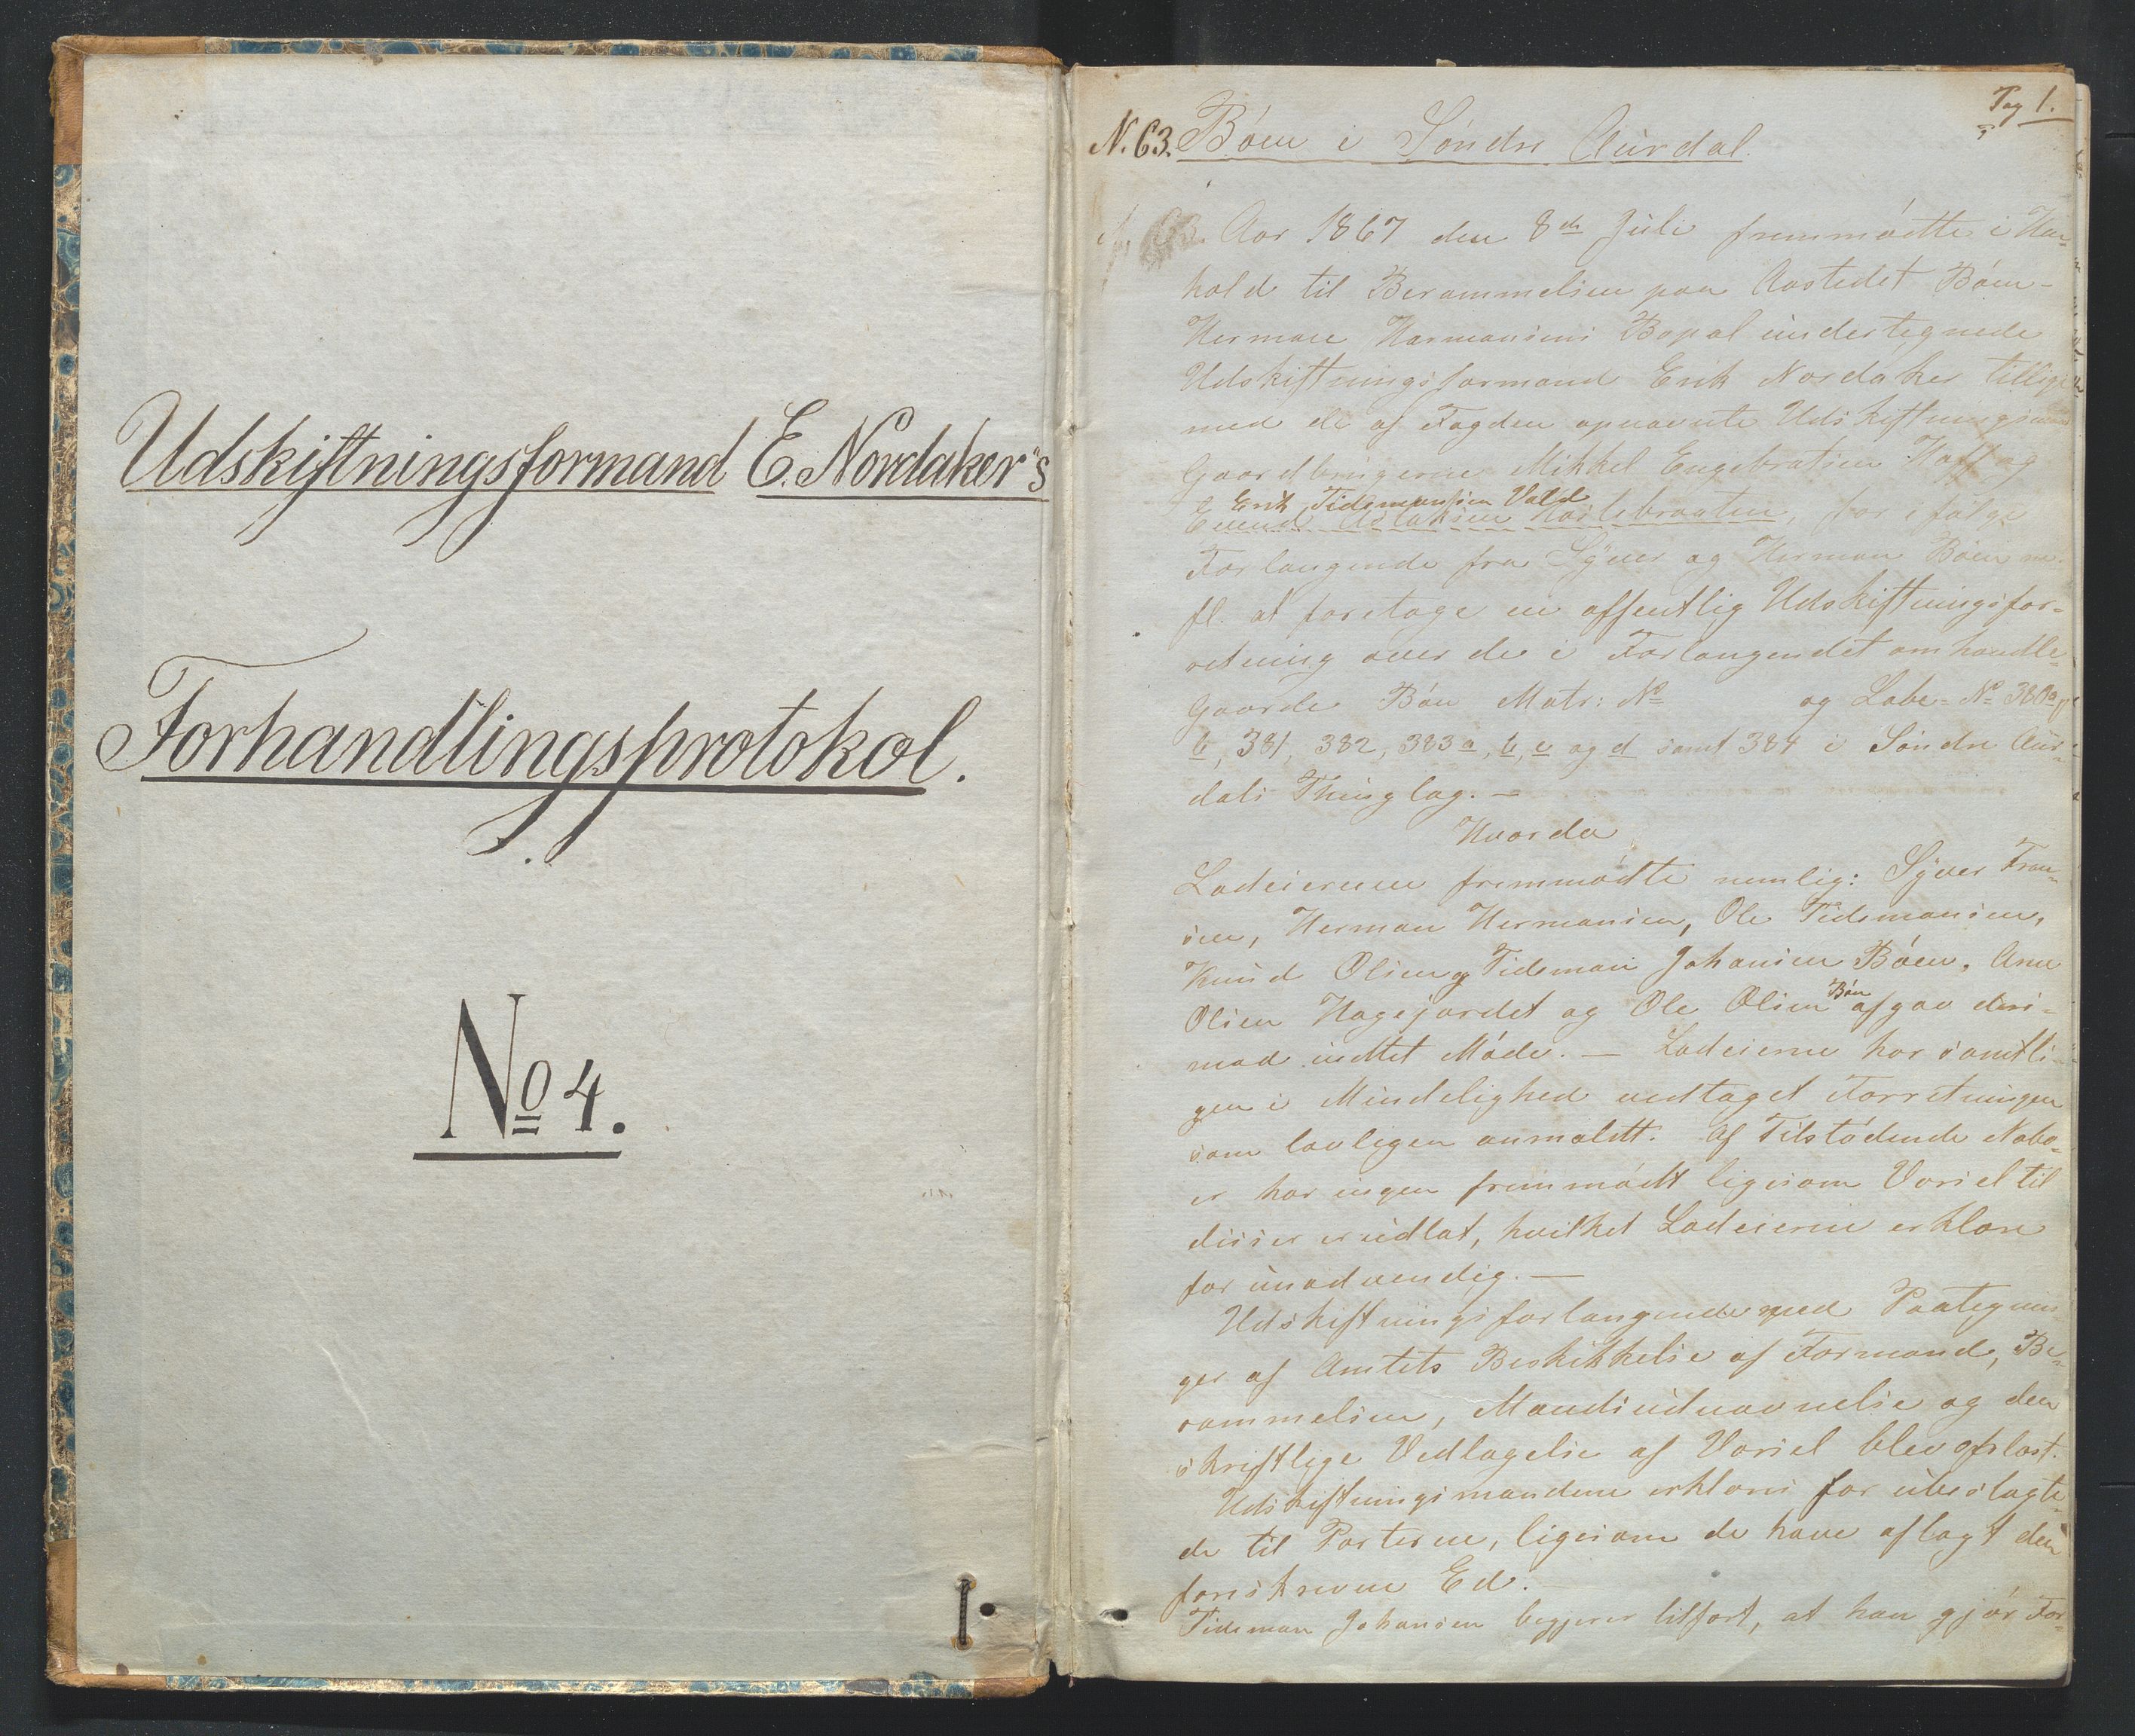 Udskiftningsformand E. Nordaker's
Forhandlingsprotokol.
No 4.
Pag 1.
N. 63. Böen i Söndre Aurdal.
Aar 1867 den 8de Juli fremmödte i Hen-
hold til Berammelsen paa Aastedet Böen -
Herman Hermansens Bopæl undertegnede
Udskiftningsformand Erik Nordaker tillige
med de af Fogden opnævnte Udskiftningsmænd
Gaardbrugerne Mikkel Engebretsen Hoff og
Erik Tidemansen Vold
Evend Aslaksen Karlsbraaten, for ifölge
Forlangende fra Syver og Herman Böen m.
fl. at foretage en offentlig Udskiftningsfor-
retning over de i Forlangendet omhandlede
Gaarde Böen Matr: No og Löbe-No 380 a og
b, 381, 382, 383 a, b, c og d samt 384 i Söndre Aur-
dals Thinglag. -
Hvorda
Lodeierene fremmödte nemlig: Syver Fran-
sen, Herman Hermansen, Ole Tidemansen,
Knud Olsen og Tideman Johansen Böen, Arne
Olsen Hagejordet og Ole Olsen Böen afgav deri-
mod intet Möde. - Lodeierne har samtli-
gen i Mindelighed vedtaget Forretningen
som lovligen anmeldt. Af Tilstödende Nabo-
er har ingen fremmödt ligesom Varsel til
disse er udlat, hvilket Lodeierne erklære
for unödvendig. -
Udskiftningsforlangende med Paategnin-
ger af Amtets Beskikkelse af Formand, Be-
rammelsen, Mandsudnævnelse og den
skriftlige Vedtagelse af Varsel blev oplæst.
Udskiftningsmændene erklæres for ubeslægte-
de til Parterne, ligesom de have aflagt den
foreskrevne Ed. -
Tideman Johansen begjerer tilfört, at han gjör For-